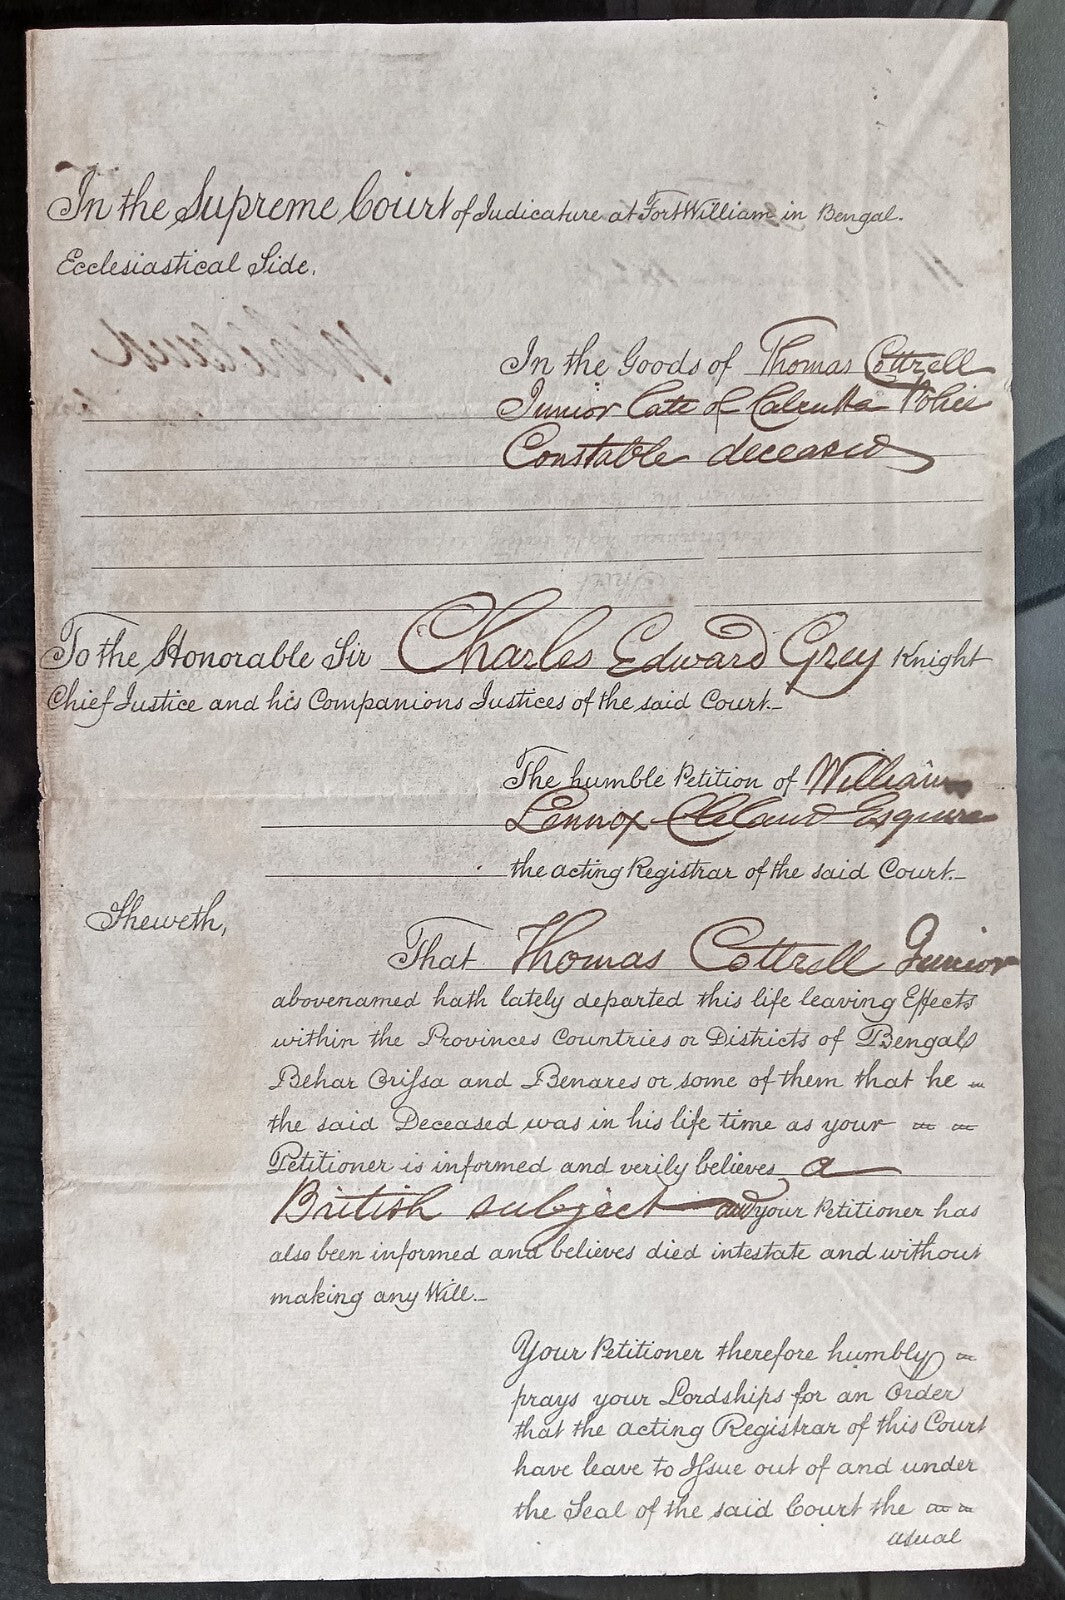 In the Supreme Court of Judicature at Fort William in Bengal.
Ecclesiastical Side.
In the Goods of Thomas Cottrell
Junior late of Calcutta Police
Constable deceased
To the Honorable Sir Charles Edward Grey Knight
Chief Justice and his Companions Justices of the said Court.
The humble Petition of William
Lennox Cleland Esquire
the acting Registrar of the said Court.
Sheweth,
That Thomas Cottrell Junior
abovenamed hath lately departed this life leaving Effects
within the Provinces Countries or Districts of Bengal
Behar Orissa and Benares or some of them that he
the said Deceased was in his life time as your
Petitioner is informed and verily believes a
British subject and your Petitioner has
also been informed and believes died intestate and without
making any Will.
Your Petitioner therefore humbly
prays your Lordships for an Order
that the acting Registrar of this Court
have leave to Issue out of and under
the Seal of the said Court the
usual